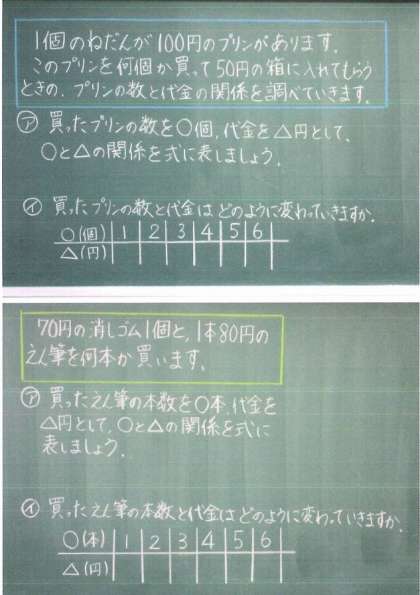 1個のねだんが100円のプリンがあります.
このプリンを何個か買って50円の箱に入れてもらう
ときの、プリンの数と代金の関係を調べていきます.
㋐ 買ったプリンの数を○個,代金を△円として、
○と△の関係を式に表しましょう.
㋑ 買ったプリンの数と代金は どのように変わっていきますか.
○(個) 1 2 3 4 5 6
△(円)
70円の消しゴム1個と,1本80円の
えん筆を何本か買います.
㋐ 買ったえん筆の本数を○本,代金を
△円として、○と△の関係を式に
表しましょう.
㋑ 買ったえん筆の本数と代金は どのように変わっていきますか.
○(本) 1 2 3 4 5 6
△(円)